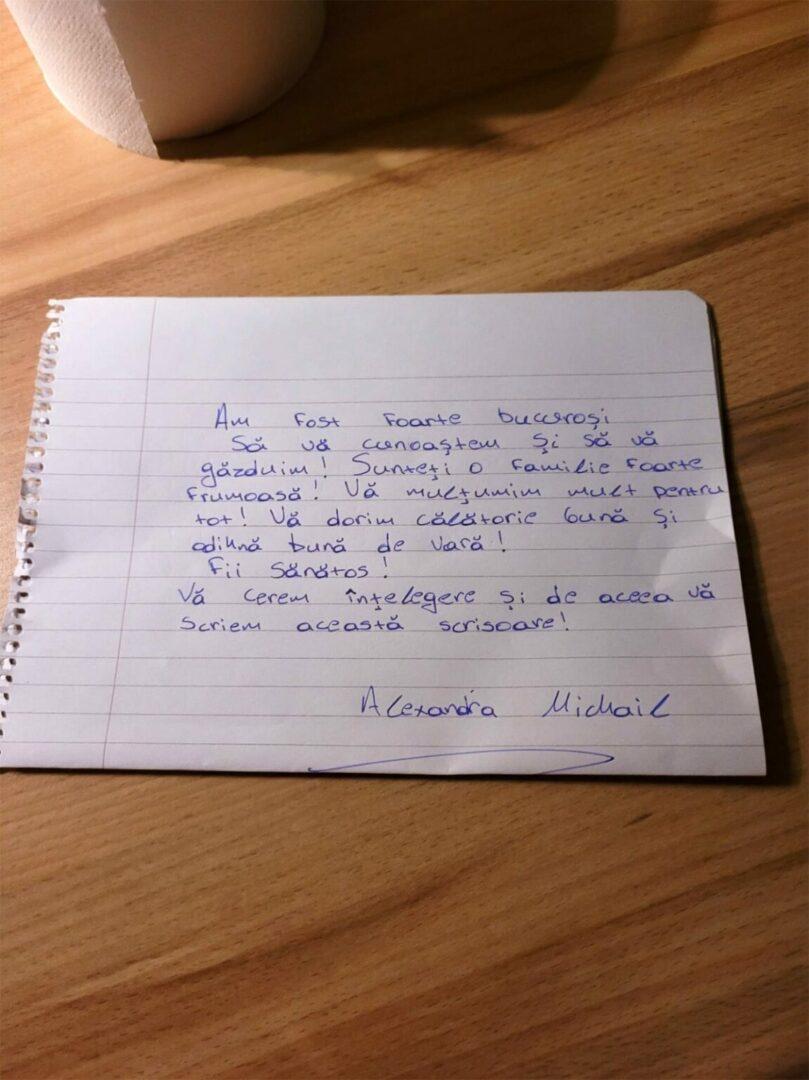 Am fost foarte bucuroşi
Să vă cunoaştem şi să vă
găzduim! Sunteţi o familie foarte
frumoasă! Vă mulţumim mult pentru
tot! Vă dorim călătorie bună şi
odihnă bună de vară!
Fii sănătos!
Vă cerem înţelegere şi de aceea vă
scriem această scrisoare!
Alexandra Michail